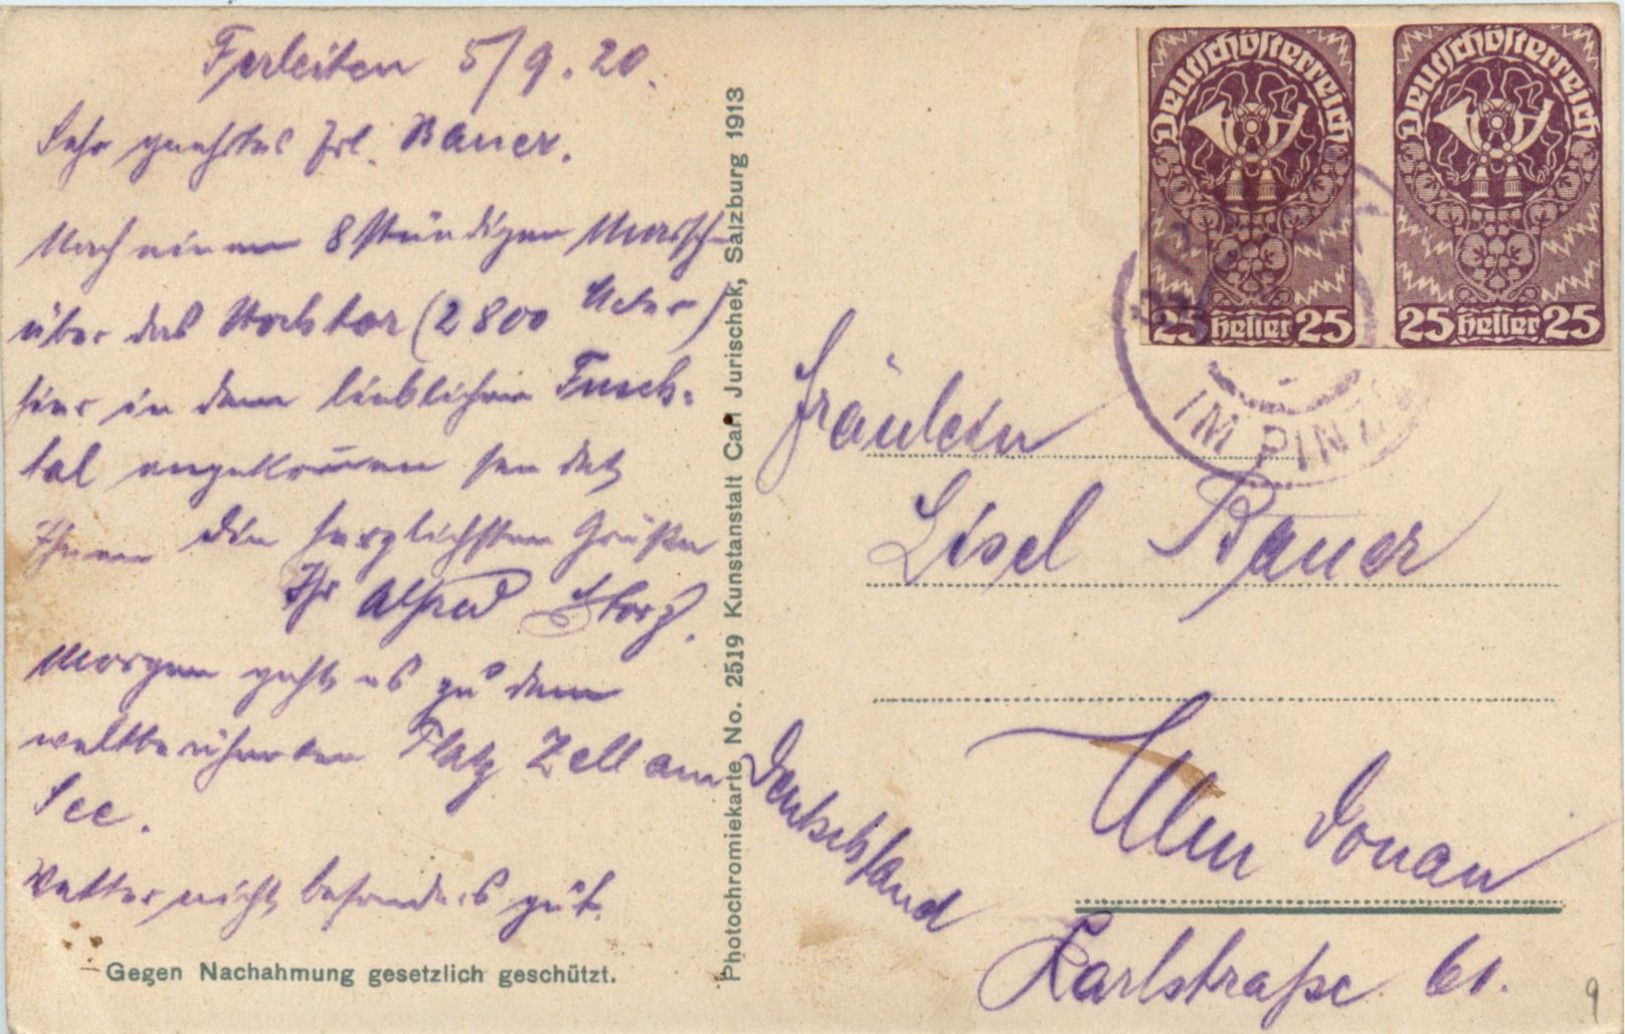 Ferleiten 5/9.20.
Sehr geehrtes Frl. Bauer.
Nach einem 8 stündigen Marsche
über das Hochtor (2800 Meter)
hier in dem lieblichen Fusch-
tal angekommen sendet
Ihnen die herzlichsten Grüße
Ihr Alfred Storz.
Morgen geht es zu dem
weltberühmten Platz Zell am
See.
Wetter nicht besonders gut.
Gegen Nachahmung gesetzlich geschützt.
Photochromiekarte No. 2519 Kunstanstalt Carl Jurischek, Salzburg 1913
Deutschösterreich
25 Heller 25
Deutschösterreich
25 Heller 25
IM PINZ
Fräulein
Lisel Bauer
Ulm Donau
Deutschland
Karlstraße 61.
9